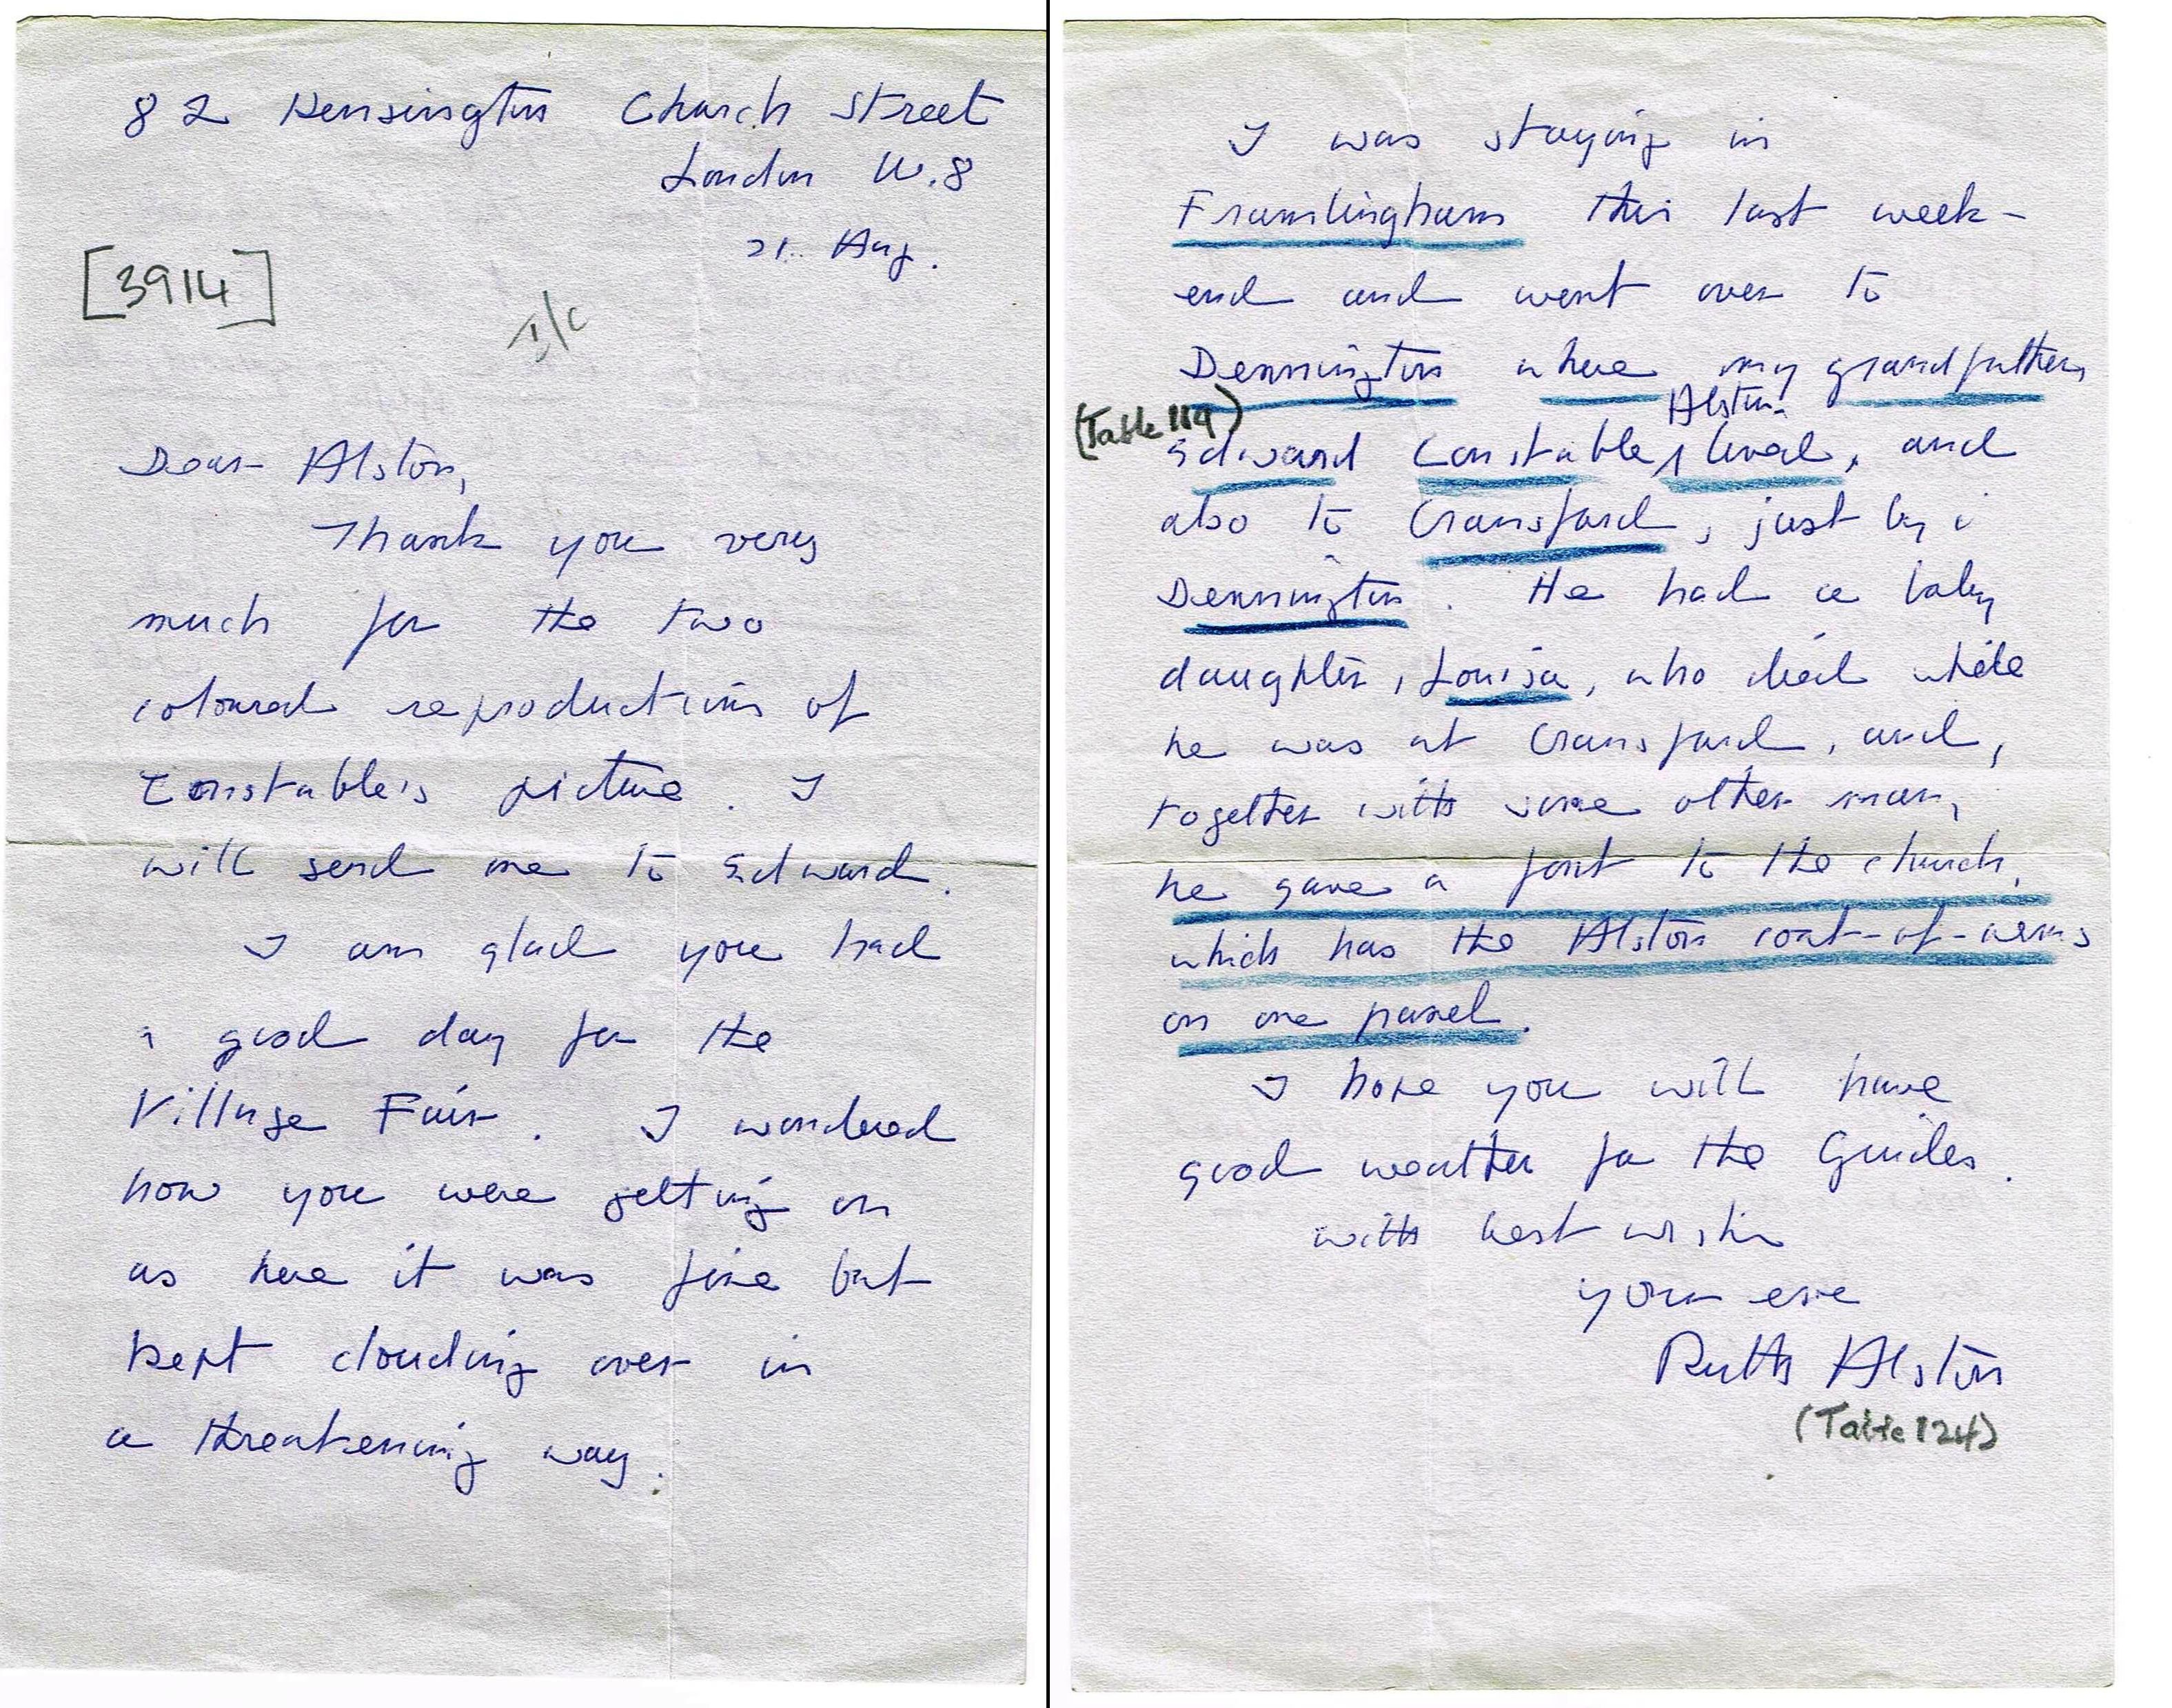 82 Kensington Church Street
London W.8
21. Aug.
[3914]
I/C
Dear Alston,
Thank you very
much for the two
coloured reproductions of
Constable's picture. I
will send one to Edward.
I am glad you had
a good day for the
Village Fair. I wondered
how you were getting on
as here it was fine but
kept clouding over in
a threatening way.
I was staying in
Framlingham this last week-
end and went over to
Dennington where my grandfather,
(Table 119)
Alston
Edward Constable, lived, and
also to Cransford, just by
Dennington. He had a baby
daughter, Louisa, who died while
he was at Cransford, and,
together with some other man,
he gave a font to the church,
which has the Alston coat-of-arms
on one panel.
I hope you will have
good weather for the Guides.
with best wishes
your ever
Ruth Alston
(Table 124)